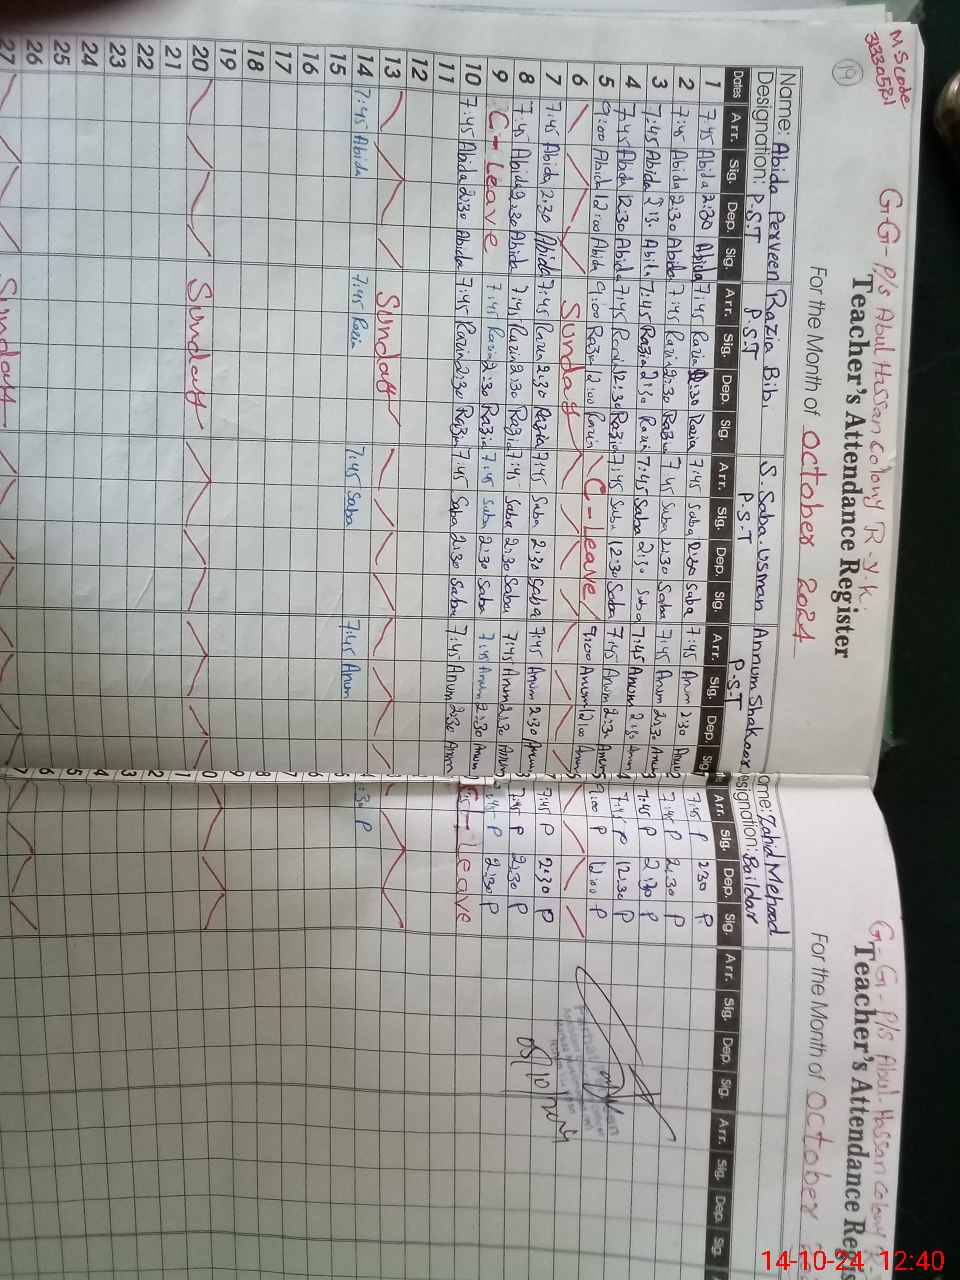 MS code
31330521
19
G-G-P/S Abul Hassan Colony R-Y-K.
Teacher's Attendance Register
For the Month of October 2024
Name: Abida Perveen Razia Bibi S. Saba Usman Annum Shakoor
Designation: P.S.T P.S.T P.S.T P.S.T
Dates Arr. Sig. Dep. Sig. Arr. Sig. Dep. Sig. Arr. Sig. Dep. Sig. Arr. Sig. Dep. Sig
1 7:45 Abida 2:30 Abida 7:45 Razia 2:30 Razia 7:45 Saba 2:30 Saba 7:45 Anum 2:30 Anum
2 7:45 Abida 2:30 Abida 7:45 Razia 2:30 Razia 7:45 Saba 2:30 Saba 7:45 Anum 2:30 Anum
3 7:45 Abida Abida 7:45 Razia 2:30 Razia 7:45 Saba 2:30 Saba 7:45 Anum 2:30 Anum
4 7:45 Abida 12:30 Abida 7:45 Razia 12:30 Razia 7:45 Saba 12:30 Saba 7:45 Anum 2:30 Anum
5 9:00 Abida 12:00 Abida 9:00 Razia 12:00 Razia C-Leave 9:00 Anum 12:00 Anum
6 Sunday
7 7:45 Abida 2:30 Abida 7:45 Razia 2:30 Razia 7:45 Saba 2:30 Saba 7:45 Anum 2:30 Anum
8 7:45 Abida 2:30 Abida 7:45 Razia 2:30 Razia 7:45 Saba 2:30 Saba 7:45 Anum 2:30 Anum
9 C-Leave 7:45 Razia 2:30 Razia 7:45 Saba 2:30 Saba 7:45 Anum 2:30 Anum
10 7:45 Abida 2:30 Abida 7:45 Razia 2:30 Razia 7:45 Saba 2:30 Saba 7:45 Anum 2:30 Anum
11
12
13 Sunday
14 7:45 Abida 7:45 Razia 7:45 Saba 7:45 Anum
15
16
17
18
19
20 Sunday
21
22
23
24
25
26
27 Sunday
G-G-P/S Abul-Hassan Colony R-
Teacher's Attendance Regis
For the Month of October
ame: Zahid Mehmood
esignation: Baildar
Arr. Sig. Dep. Sig. Arr. Sig. Dep. Sig. Arr. Sig. Dep. Sig.
7:45 P 2:30 P
7:45 P 2:30 P
7:45 P 2:30 P
7:45 P 12:30 P
9:00 P 12:00 P
7:45 P 2:30 P
7:45 P 2:30 P
7:45 P 2:30 P
Leave
:30 P
05/10/2024
14-10-24 12:40